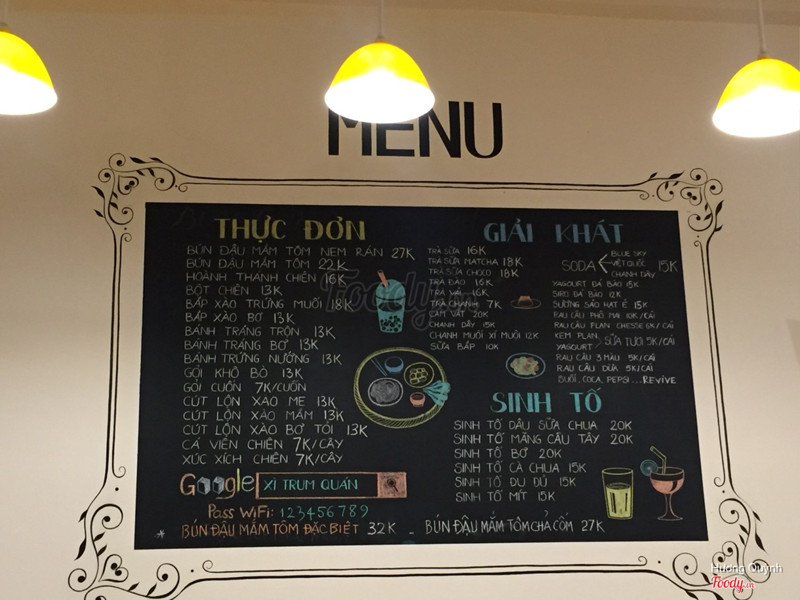 MENU
THỰC ĐƠN
BÚN ĐẬU MẮM TÔM NEM RÁN 27K
BÚN ĐẬU MẮM TÔM 22K
HOÀNH THÁNH CHIÊN 16K
BỘT CHIÊN 13K
BẮP XÀO TRỨNG MUỐI 18K
BẮP XÀO BƠ 13K
BÁNH TRÁNG TRỘN 13K
BÁNH TRÁNG BƠ 13K
BÁNH TRỨNG NƯỚNG 13K
GỎI KHÔ BÒ 13K
GỎI CUỐN 7K/CUỐN
CÚT LỘN XÀO ME 13K
CÚT LỘN XÀO MẮM 13K
CÚT LỘN XÀO BƠ TỎI 13K
CÁ VIÊN CHIÊN 7K/CÂY
XÚC XÍCH CHIÊN 7K/CÂY
Google XÌ TRUM QUÁN
Pass WiFi: 123456789
GIẢI KHÁT
TRÀ SỮA 16K
TRÀ SỮA MATCHA 18K
TRÀ SỮA CHOCO 18K
TRÀ ĐÀO 16K
TRÀ VẢI 16K
TRÀ CHANH 7K
CAM VẮT 20K
CHANH DÂY 15K
CHANH MUỐI XÍ MUỘI 12K
SỮA BẮP 10K
SODA BLUE SKY
VIỆT QUỐC 15K
CHANH DÂY
YAGOURT ĐÁ BÀO 15K
SIRO ĐÁ BÀO 12K
SƯƠNG SÁO HẠT É 15K
RAU CÂU PHÔ MAI 10K/CÁI
RAU CÂU FLAN CHESSE 8K/CÁI
KEM PLAN
YAGOURT SỮA TƯƠI 5K/CÁI
RAU CÂU 3 MÀU 5K/CÁI
RAU CÂU DỪA 5K/CÁI
SUỐI, COCA, PEPSI...REVIVE
SINH TỐ
SINH TỐ DÂU SỮA CHUA 20K
SINH TỐ MÃNG CẦU TÂY 20K
SINH TỐ BƠ 20K
SINH TỐ CÀ CHUA 15K
SINH TỐ DU ĐỦ 15K
SINH TỐ MÍT 15K
* BÚN ĐẬU MẮM TÔM ĐẶC BIỆT 32K - BÚN ĐẬU MẮM TÔM CHẢ CỐM 27K
Foody
Hương Quỳnh
Foody.vn